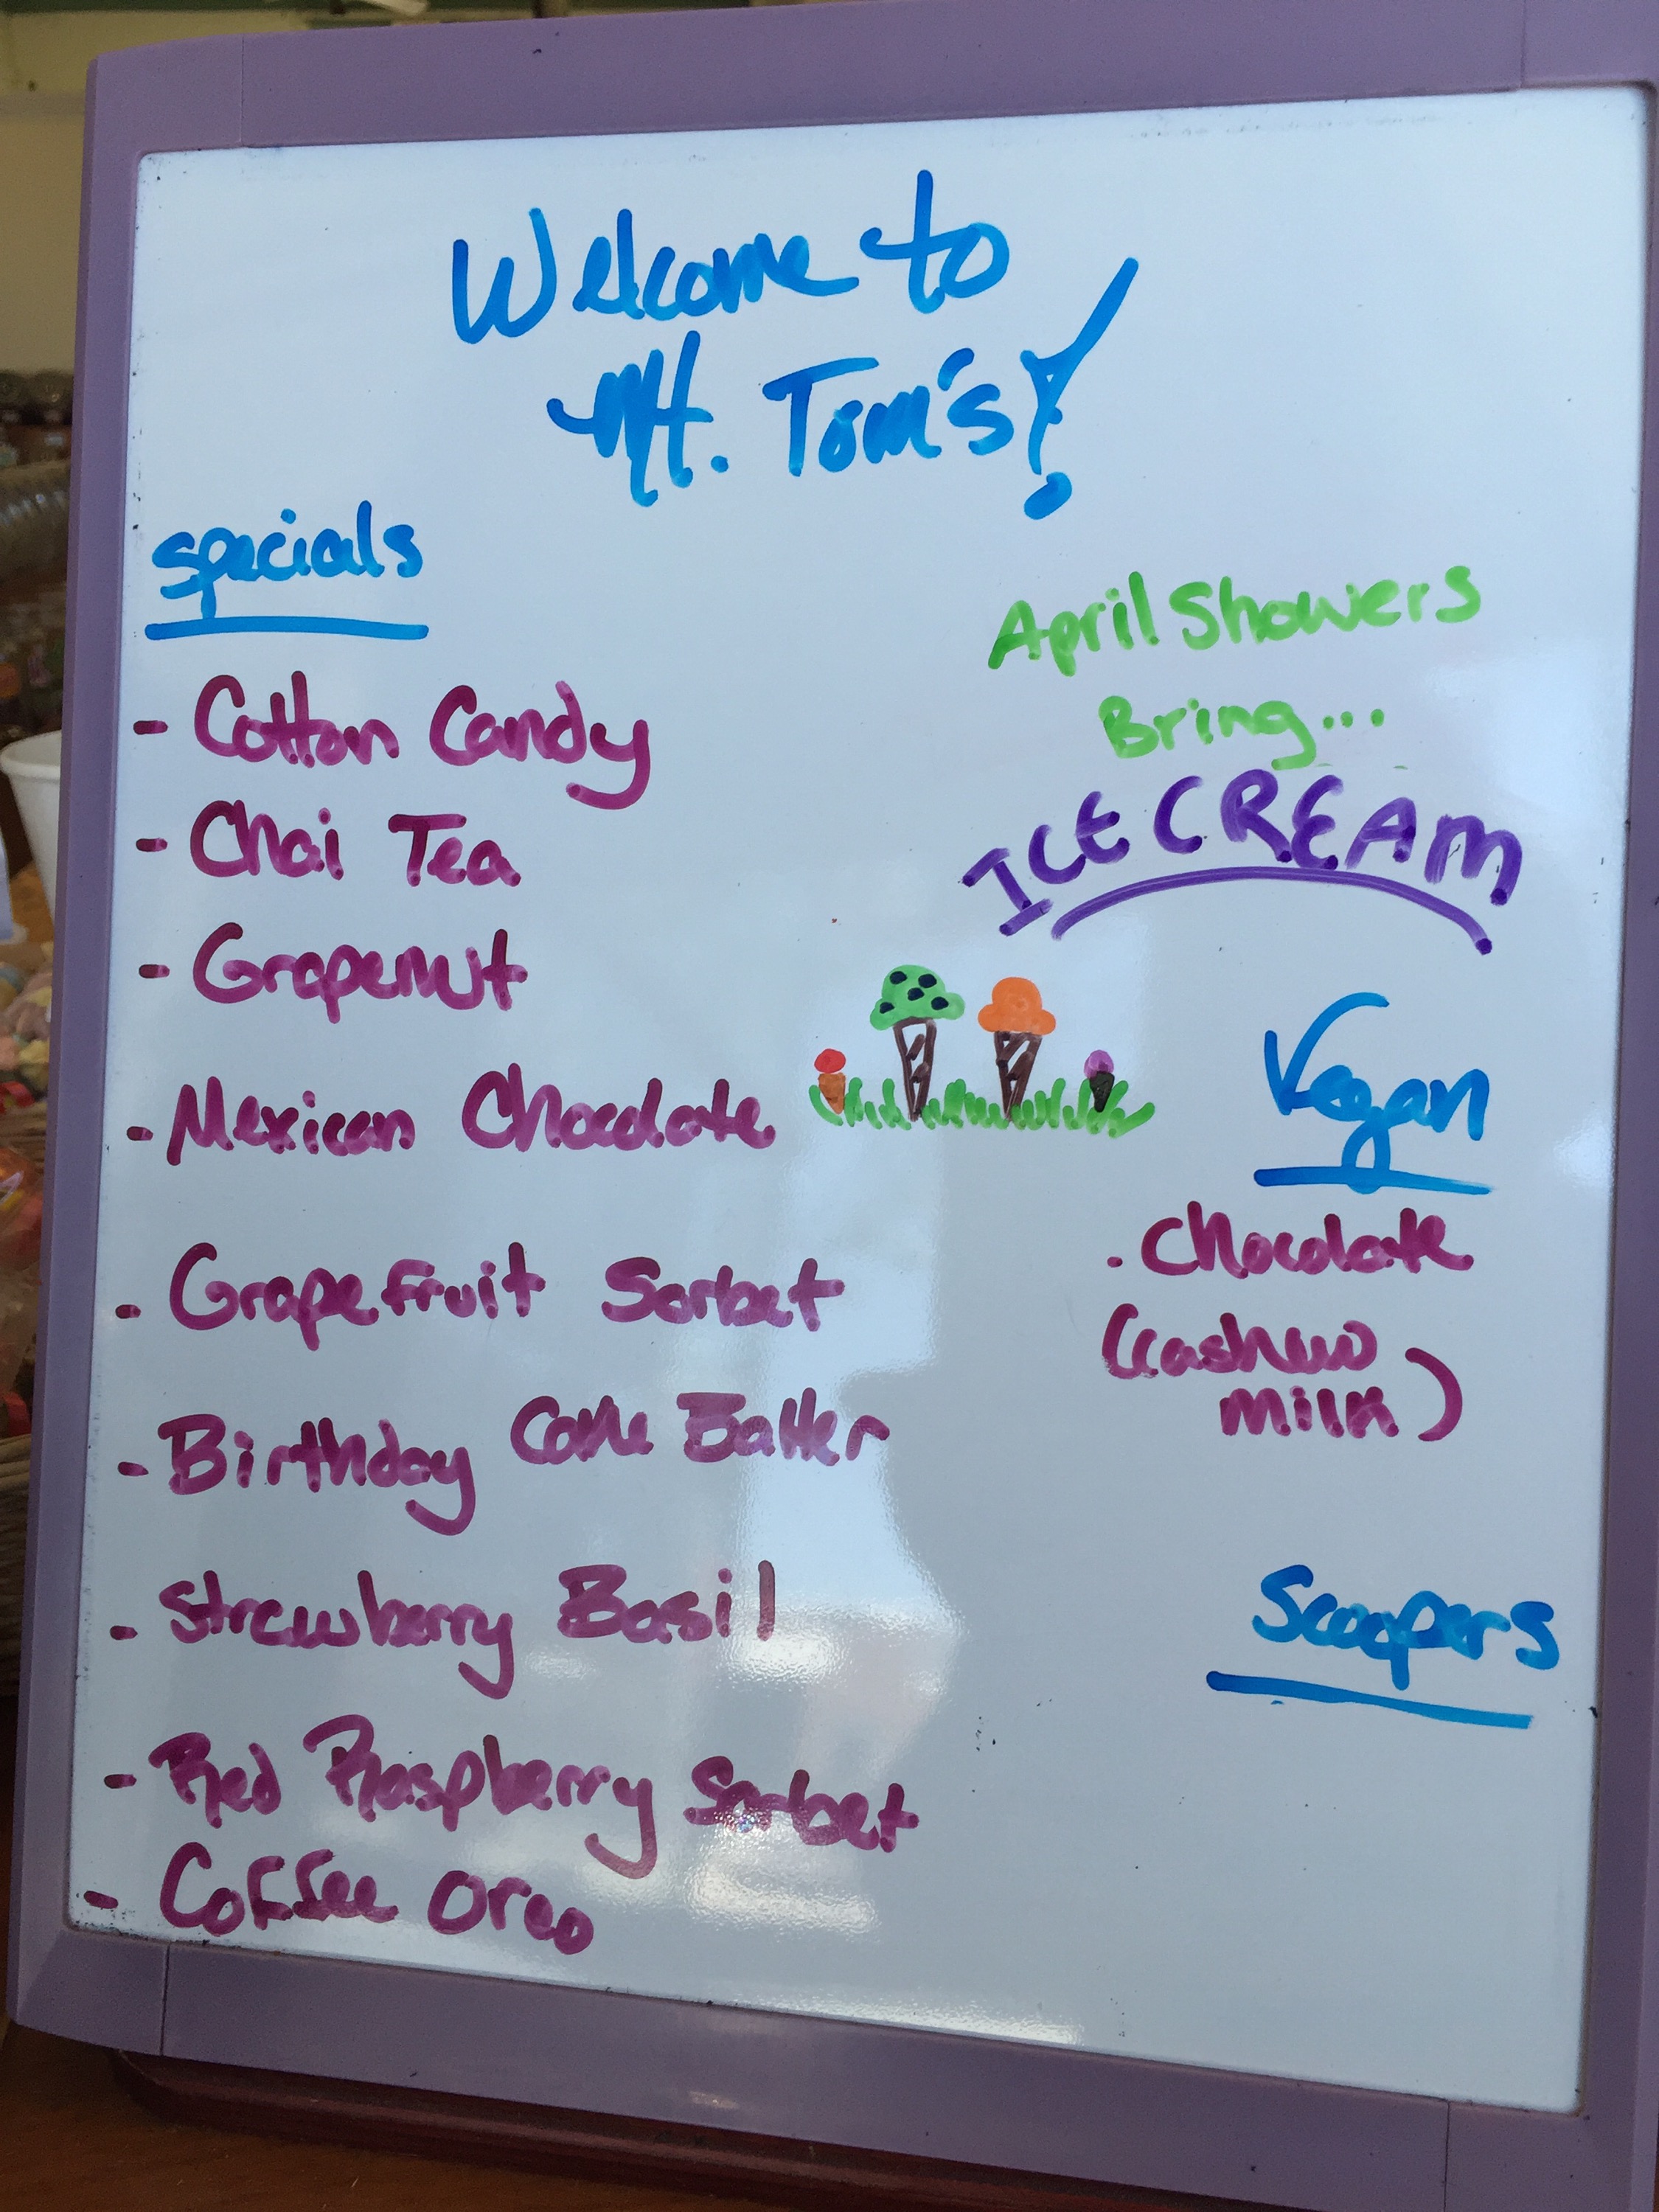 Welcome to
Mt. Tom's!
Specials
- Cotton Candy
- Chai Tea
- Grapenut
- Mexican Chocolate
- Grapefruit Sorbet
- Birthday Cake Batter
- Strawberry Basil
- Red Raspberry Sorbet
- Coffee Oreo
April Showers
Bring...
ICE CREAM
Vegan
. Chocolate
(cashew
milk)
Scoopers